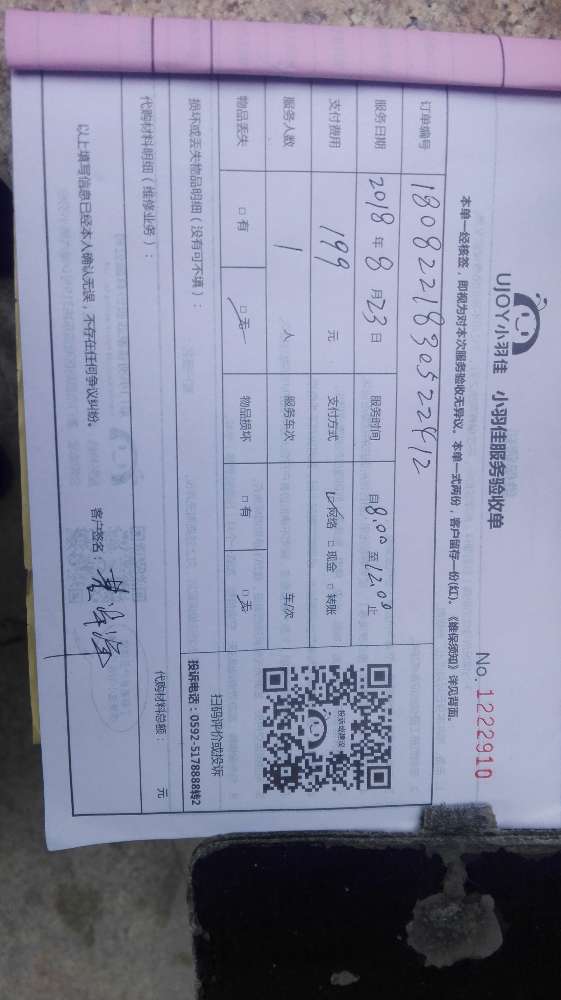 UJOY小羽佳 小羽佳服务验收单
No. 1222910
本单一经核签，即视为对本次服务验收无异议。本单一式两份，客户留存一份(红)。《维保须知》详见背面。
订单编号 1808221830522412
服务日期 2018年8月23日 服务时间 自8:00至12:00止
支付费用 199 元 支付方式 ☑网络 □现金 □转账
服务人数 1 人 服务车次 车/次
物品丢失 □有 ☑无 物品损坏 □有 ☑无
投诉或建议
扫码评价或投诉
投诉电话：0592-5178888转2
损坏或丢失物品明细（没有可不填）：
代购材料明细（维修业务）：
代购材料总额： 元
以上填写信息已经本人确认无误，不存在任何争议纠纷。
客户签名：